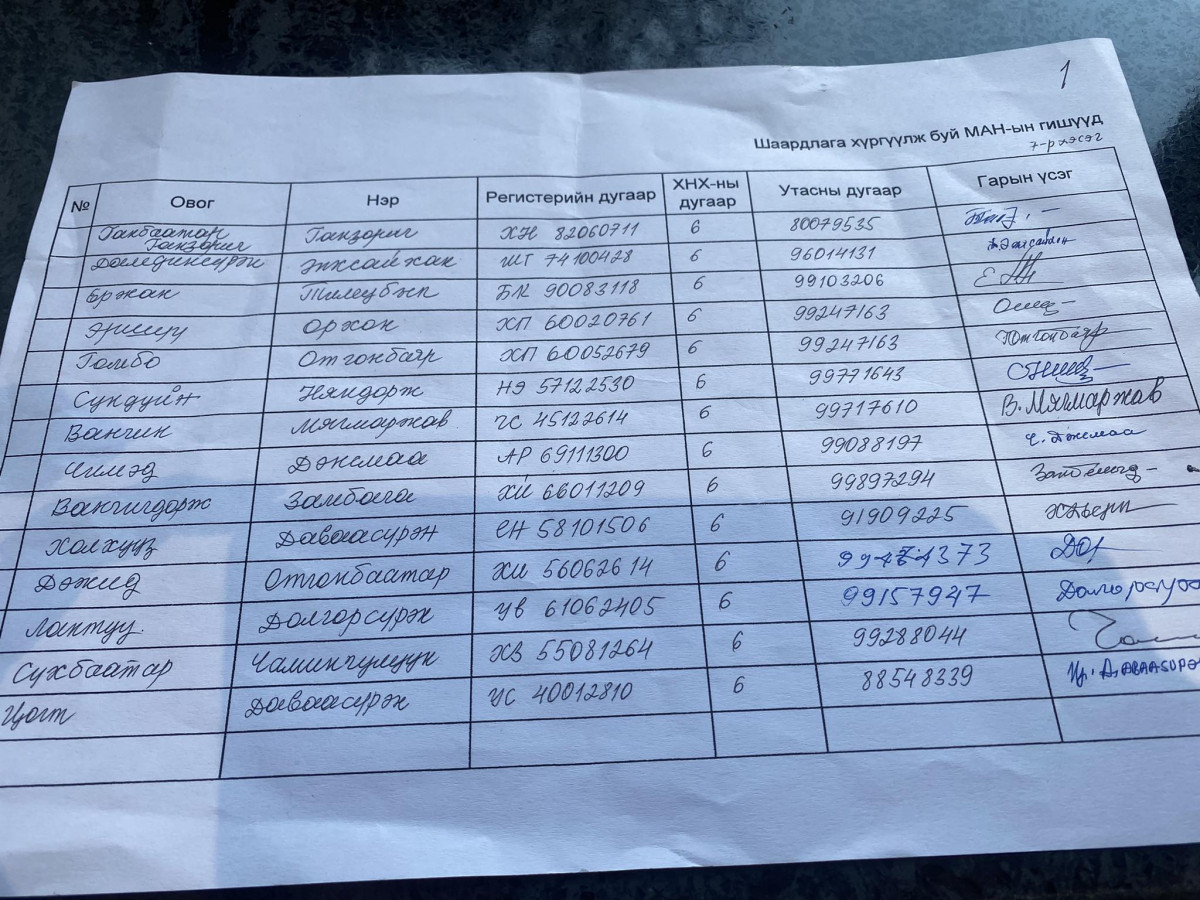 1
Шаардлага хүргүүлж буй МАН-ын гишүүд
7-р хэсэг
№ Овог Нэр Регистерийн дугаар ХНХ-ны дугаар Утасны дугаар Гарын үсэг
Ганбаатар Ганзориг ХН 82060711 6 80079535
Ганзориг
Дамдинсүрэн Энхсайхан ШГ 74100428 6 96014131
Ержан Тилеубэк БК 90083118 6 99103206
Орхон ХП 60020761 6 99247163
Гомбо Отгонбаяр ХП 60052679 6 99247163 Отгонбаяр
Сундуйн Няндорж НЭ 57122530 6 99771643
Ванчин Мягмаржав ЧС 45122614 6 99717610 В. Мягмаржав
Чимэд Дэнсмаа АР 69111300 6 99088197 Ч. Дэнсмаа
Ванчигдорж Замбага ХЙ 66011209 6 99897294
Холхүүз Даваасүрэн ЕН 58101506 6 91909225
Дэжид Отгонбаатар ХИ 56062614 6
Лантуу Долгорсүрэн УВ 61062405 6 99157947
Сүхбаатар ХВ 55081264 6 99288044
Цогт Даваасүрэн УС 40012810 6 88548339 Ц. Даваасүрэ